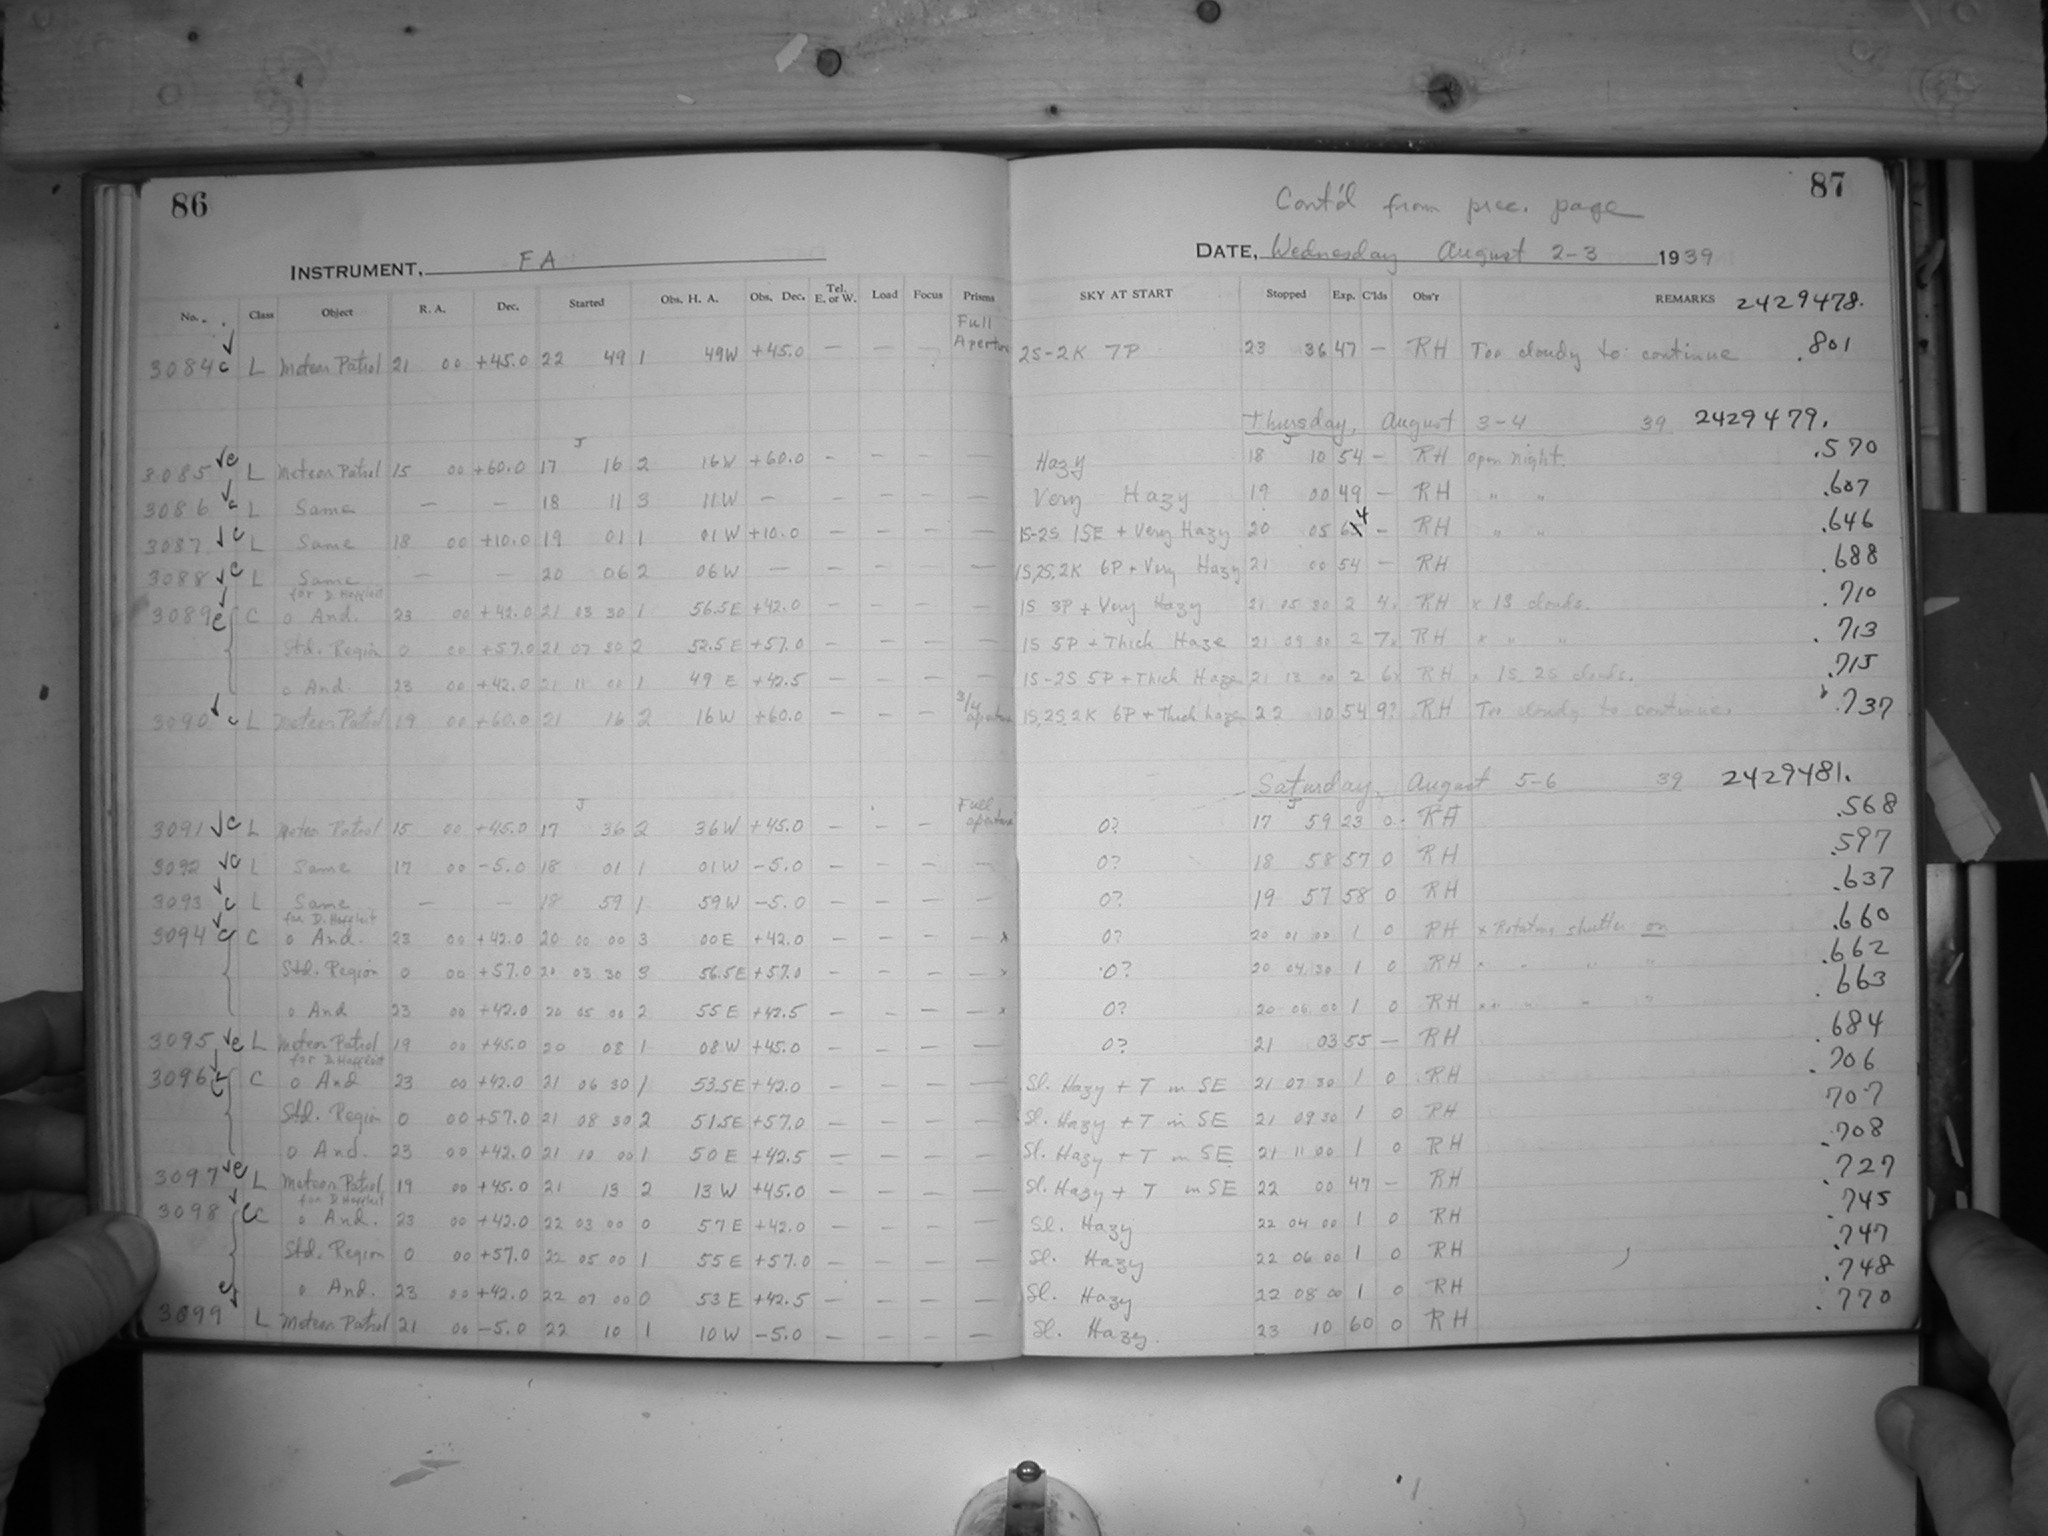 86
87
Cont'd from prec. page
INSTRUMENT, FA
DATE, Wednesday August 2-3 1939
No. Class Object R. A. Dec. Started Obs. H. A. Obs. Dec. Tel. E. or W. Load Focus Prisms SKY AT START Stopped Exp. C'lds Obs'r REMARKS 2429478.
Full Aperture
3084 c L Meteor Patrol 21 00 +45.0 22 49 1 49W +45.0 — — — 2S-2K 7P 23 36 47 — RH Too cloudy to continue .801
Thursday, August 3-4 39 2429479.
3085 c L Meteor Patrol 15 00 +60.0 17 16 2 16W +60.0 - - - — Hazy 18 10 54 — RH open night. .570
3086 c L Same — — 18 11 3 11W — - - - — Very Hazy 19 00 49 — RH " " .607
3087 c L Same 18 00 +10.0 19 01 1 01W +10.0 — — — — 1S-2S 1SE + Very Hazy 20 05 64 - RH " " .646
3088 c L Same — — 20 06 2 06W — — — — — 1S,2S,2K 6P + Very Hazy 21 00 54 — RH .688
for D. Hoffleit
3089 c C o And. 23 00 +42.0 21 03 30 1 56.5E +42.0 — — — — 1S 3P + Very Hazy 21 05 30 2 4x RH x 1S clouds. .710
Std. Region 0 00 +57.0 21 07 30 2 52.5E +57.0 — — — — 1S 5P + Thick Haze 21 09 30 2 7x RH x " " .713
o And. 23 00 +42.0 21 11 00 1 49 E +42.5 — — — — 1S-2S 5P + Thick Haze 21 13 00 2 6x RH x 1S, 2S clouds. .715
3/4 aperture
3090 c L Meteor Patrol 19 00 +60.0 21 16 2 16W +60.0 — — — 1S,2S,2K 6P + Thick haze 22 10 54 9? RH Too cloudy to continue. .737
Saturday, August 5-6 39 2429481.
Full aperture
3091 c L Meteor Patrol 15 00 +45.0 17 36 2 36W +45.0 — — — 0? 17 59 23 0 RH .568
3092 c L Same 17 00 -5.0 18 01 1 01W -5.0 — — — — 0? 18 58 57 0 RH .597
3093 c L Same — — 18 59 1 59W -5.0 — — — — 0? 19 57 58 0 RH .637
for D. Hoffleit
3094 c C o And. 23 00 +42.0 20 00 00 3 00E +42.0 — — — — x 0? 20 01 00 1 0 RH x Rotating shutter on .660
Std. Region 0 00 +57.0 20 03 30 3 56.5E +57.0 — — — — x 0? 20 04 30 1 0 RH x " " " .662
o And 23 00 +42.0 20 05 00 2 55 E +42.5 — — — — x 0? 20 06 00 1 0 RH x " " " .663
3095 c L Meteor Patrol 19 00 +45.0 20 08 1 08W +45.0 — — — — 0? 21 03 55 — RH .684
for D. Hoffleit
3096 c C o And 23 00 +42.0 21 06 30 1 53.5E +42.0 — — — — Sl. Hazy + T in SE 21 07 30 1 0 RH .706
Std. Region 0 00 +57.0 21 08 30 2 51.5E +57.0 — — — — Sl. Hazy + T in SE 21 09 30 1 0 RH .707
o And. 23 00 +42.0 21 10 00 1 50 E +42.5 — — — — Sl. Hazy + T in SE 21 11 00 1 0 RH .708
3097 c L Meteor Patrol 19 00 +45.0 21 13 2 13 W +45.0 — — — — Sl. Hazy + T in SE 22 00 47 — RH .727
for D. Hoffleit
3098 c C o And. 23 00 +42.0 22 03 00 0 57 E +42.0 — — — — Sl. Hazy 22 04 00 1 0 RH .745
Std. Region 0 00 +57.0 22 05 00 1 55 E +57.0 — — — — Sl. Hazy 22 06 00 1 0 RH .747
o And. 23 00 +42.0 22 07 00 0 53 E +42.5 — — — — Sl. Hazy 22 08 00 1 0 RH .748
3099 c L Meteor Patrol 21 00 -5.0 22 10 1 10W -5.0 — — — — Sl. Hazy. 23 10 60 0 RH .770